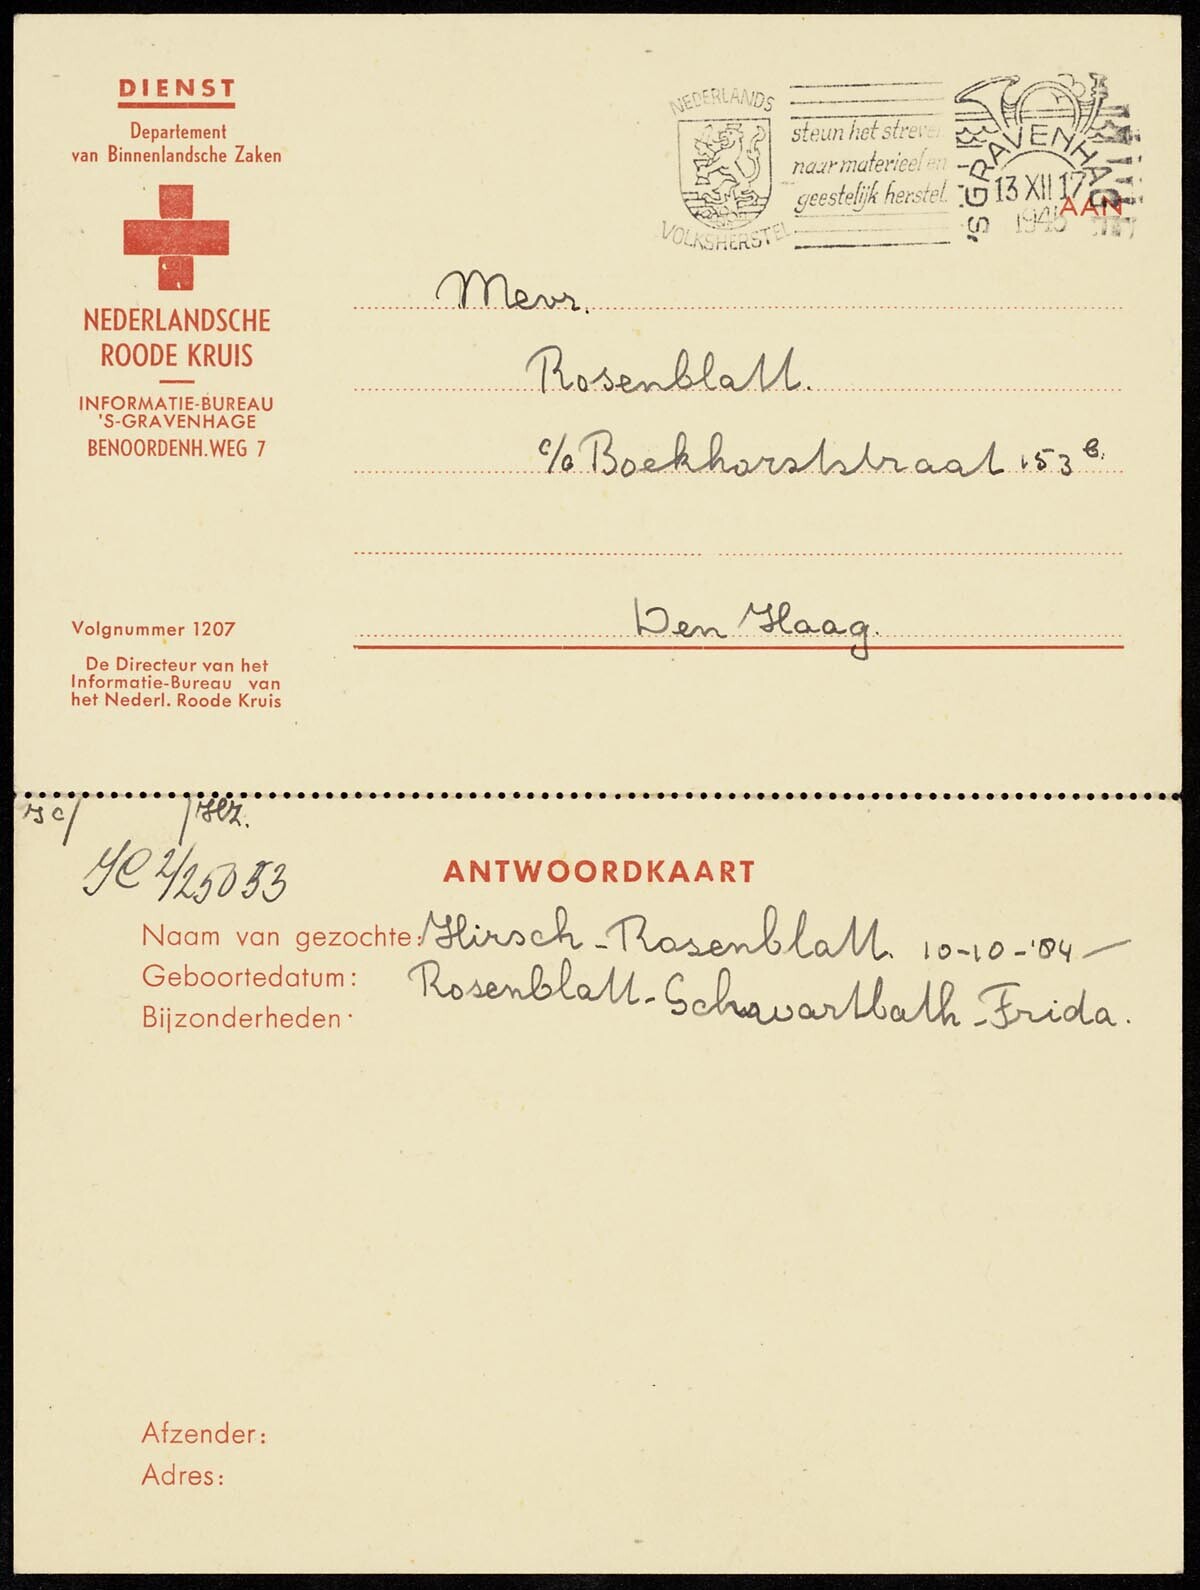 DIENST
Departement
van Binnenlandsche Zaken
NEDERLANDSCHE
ROODE KRUIS
INFORMATIE-BUREAU
'S-GRAVENHAGE
BENOORDENH. WEG 7
Volgnummer 1207
De Directeur van het
Informatie-Bureau van
het Nederl. Roode Kruis
NEDERLANDS
VOLKSHERSTEL
steun het streven
naar materieel en
geestelijk herstel.
'S GRAVENHAGE
13 XII 17
AAN
Mevr.
Rosenblatt.
c/o Boekhorststraat 153 b.
Den Haag.
ANTWOORDKAART
Naam van gezochte: Hirsch - Rosenblatt. 10-10-'04 —
Geboortedatum: Rosenblatt - Schwartbath - Frida.
Bijzonderheden
Afzender:
Adres: